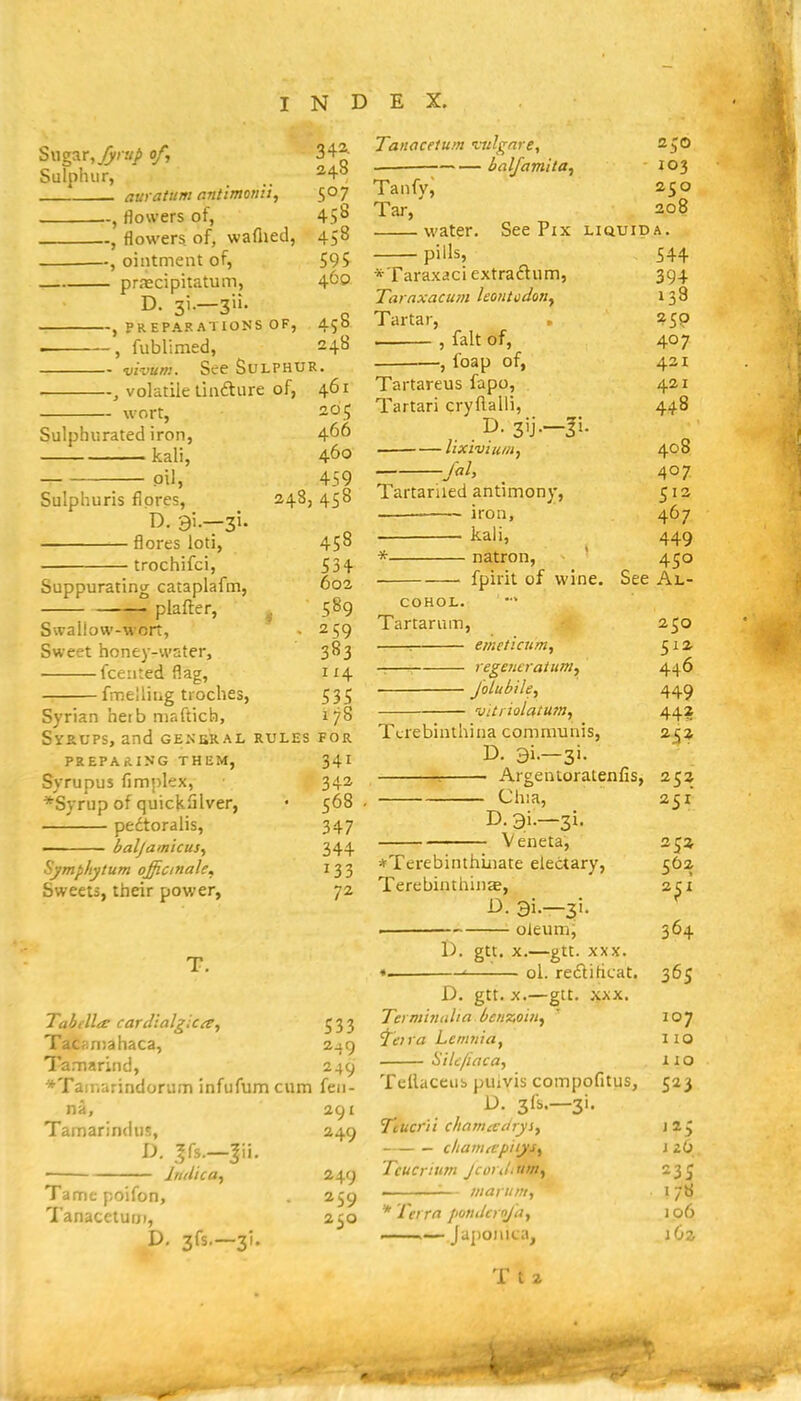 INDEX.
Sugar, ſyrup of, 342
Sulphur, 248
—— auratum antimonii, 507
——, flowers of, 458
——, flowers of, waſhed, 458
——, ointment of, 595
—— præcipitatum, 460
D. ʒi.—ʒii.
——, PREPARATIONS OF, 458
——, ſublimed, 248
—— vivum. See SULPHUR.
——, volatile tincture of, 461
—— wort, 205
Sulphurated iron, 466
—— kali, 460
—— oil, 459
Sulphuris flores, 248, 458
D. ℈i.—ʒi.
—— flores loti, 458
—— trochiſci, 534
Suppurating cataplaſm, 602
—— plaſter, 589
Swallow-wort, 259
Sweet honey-water, 383
—— ſcented flag, 114
—— ſmelling troches, 535
Syrian herb maſtich, 178
SYRUPS, and GENERAL RULES FOR
PREPARING THEM, 341
Syrupus ſimplex, 342
*Syrup of quickſilver, 568
—— pectoralis, 347
—— balſamicus, 344
Symphytum officinale, 133
Sweets, their power, 72
T.
Tabellæ cardialgicæ, 533
Tacamahaca, 249
Tamarind, 249
*Tamarindorum infuſum cum ſen-
nâ, 291
Tamarindus, 249
D. ℥ſs.—℥ii.
—— Indica, 249
Tame poiſon, 259
Tanacetum, 250
D. ʒſs.—ʒi.
Tanacetum vulgare, 250
—— balſamita, 103
Tanſy, 250
Tar, 208
—— water. See PIX LIQUIDA.
—— pills, 544
*Taraxaci extractum, 394
Taraxacum leontodon, 138
Tartar, 250
——, ſalt of, 407
——, ſoap of, 421
Tartareus ſapo, 421
Tartari cryſtalli, 448
D. ʒij.—℥i.
—— lixivium, 408
—— ſal, 407
Tartariſed antimony, 512
—— iron, 467
—— kali, 449
*—— natron, 450
—— ſpirit of wine. See AL-
COHOL.
Tartarum, 250
—— emeticum, 512
—— regeneratum, 446
—— ſolubile, 449
—— vitriolatum, 442
Terebinthina communis, 252
D. ℈i.—ʒi.
—— Argentoratenſis, 252
—— Chia, 251
D. ℈i.—ʒi.
—— Veneta, 252
*Terebinthinate electary, 562
Terebinthinæ, 251
D. ℈i.—ʒi.
—— oleum, 364
D. gtt. x.—gtt. xxx.
*—— ol. rectificat. 365
D. gtt. x.—gtt. xxx.
Terminalia benzoin, 107
Terra Lemnia, 110
—— Sileſiaca, 110
Teſtaceus pulvis compoſitus, 523
D. ʒſs.—ʒi.
Teucrii chamædrys, 125
—— chamæpitys, 126
Teucrium ſcordium, 235
—— marum, 178
*Terra ponderoſa, 106
—— Japonica, 162
T t 2